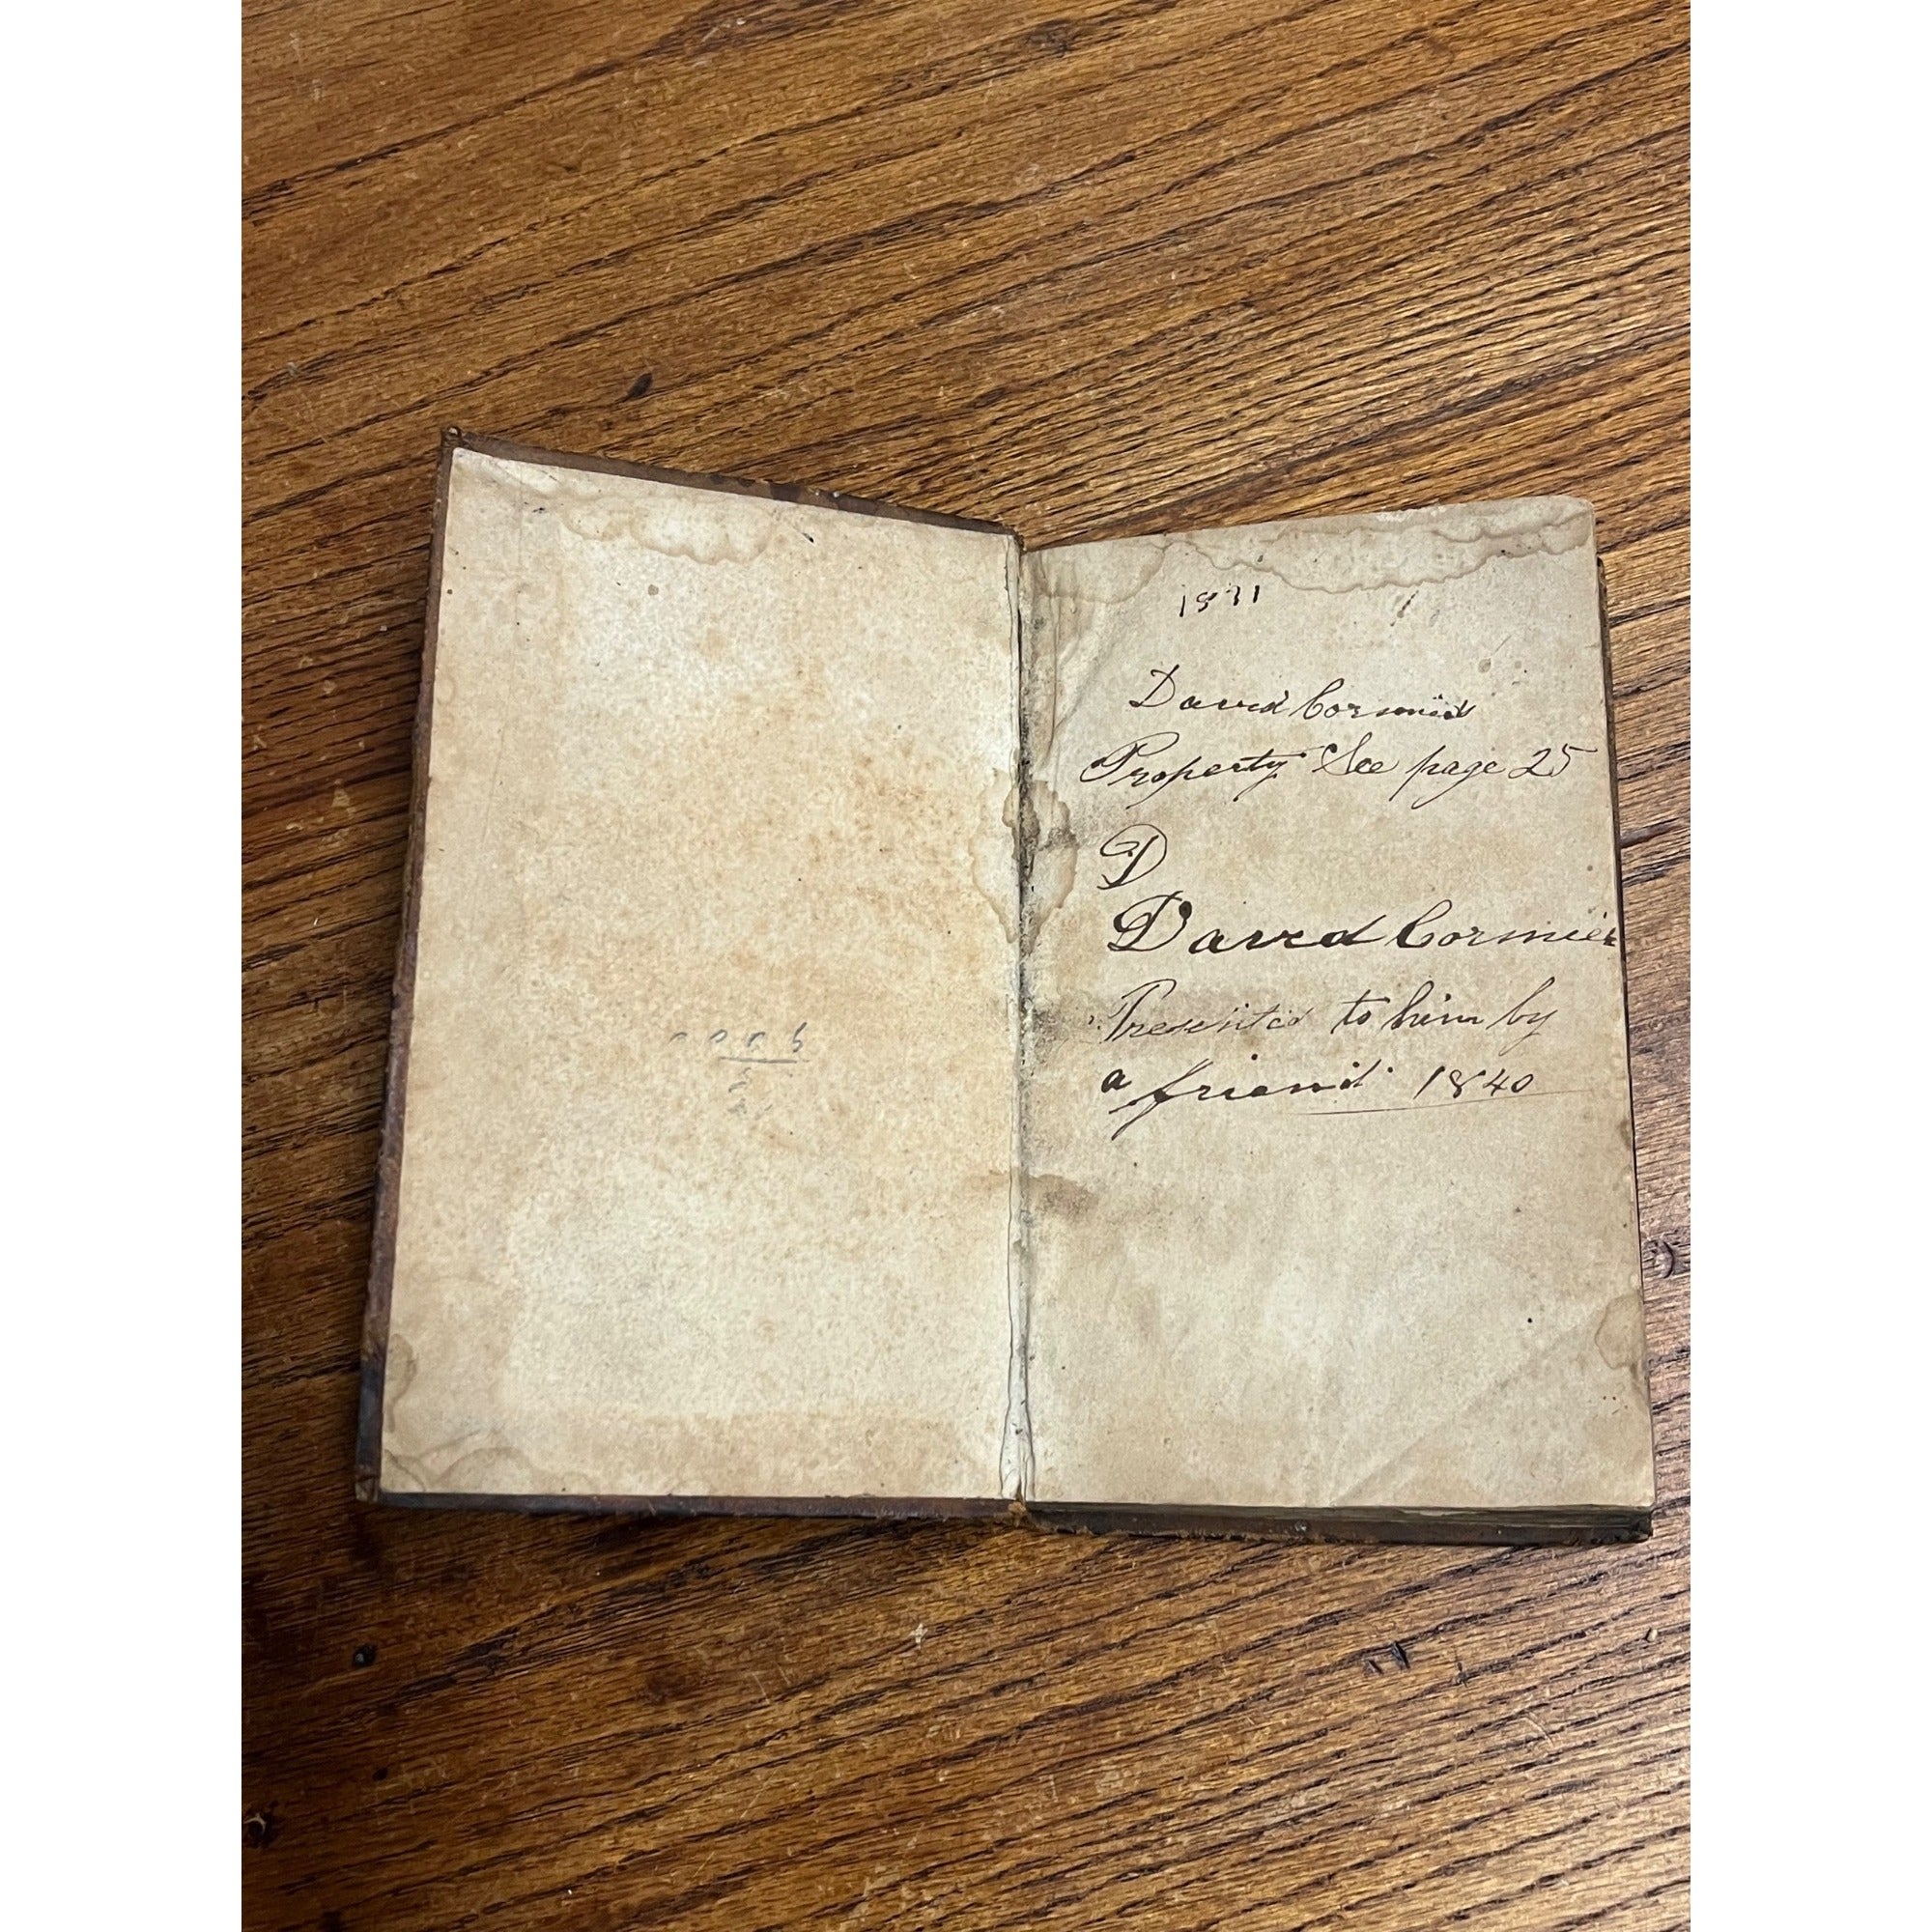 1871
David Cormier
Property See page 25
D
David Cormier
Presented to him by
a friend. 1840